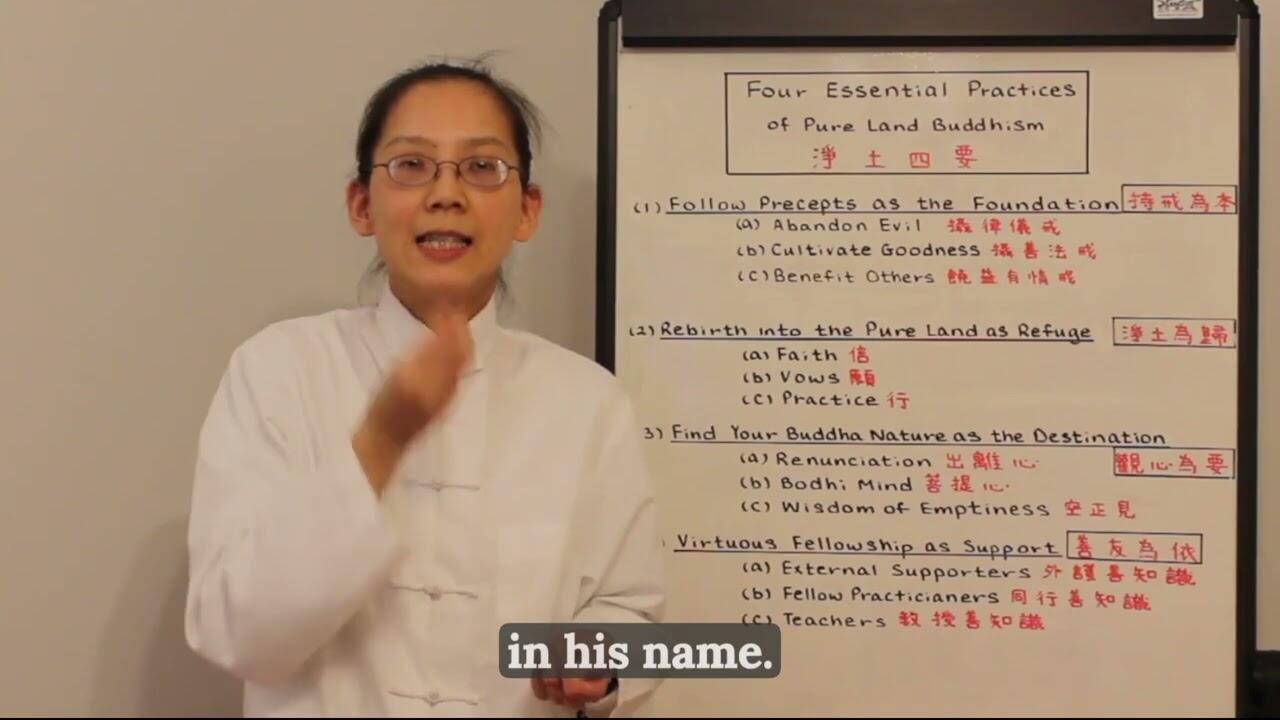 Four Essential Practices
of Pure Land Buddhism
淨土四要
(1) Follow Precepts as the Foundation 持戒為本
(a) Abandon Evil 攝律儀戒
(b) Cultivate Goodness 攝善法戒
(c) Benefit Others 饒益有情戒
(2) Rebirth into the Pure Land as Refuge 淨土為歸
(a) Faith 信
(b) Vows 願
(c) Practice 行
3) Find Your Buddha Nature as the Destination
(a) Renunciation 出離心 觀心為要
(b) Bodhi Mind 菩提心
(c) Wisdom of Emptiness 空正見
Virtuous Fellowship as Support 善友為依
(a) External Supporters 外護善知識
(b) Fellow Practicianers 同行善知識
(c) Teachers 教授善知識
in his name.